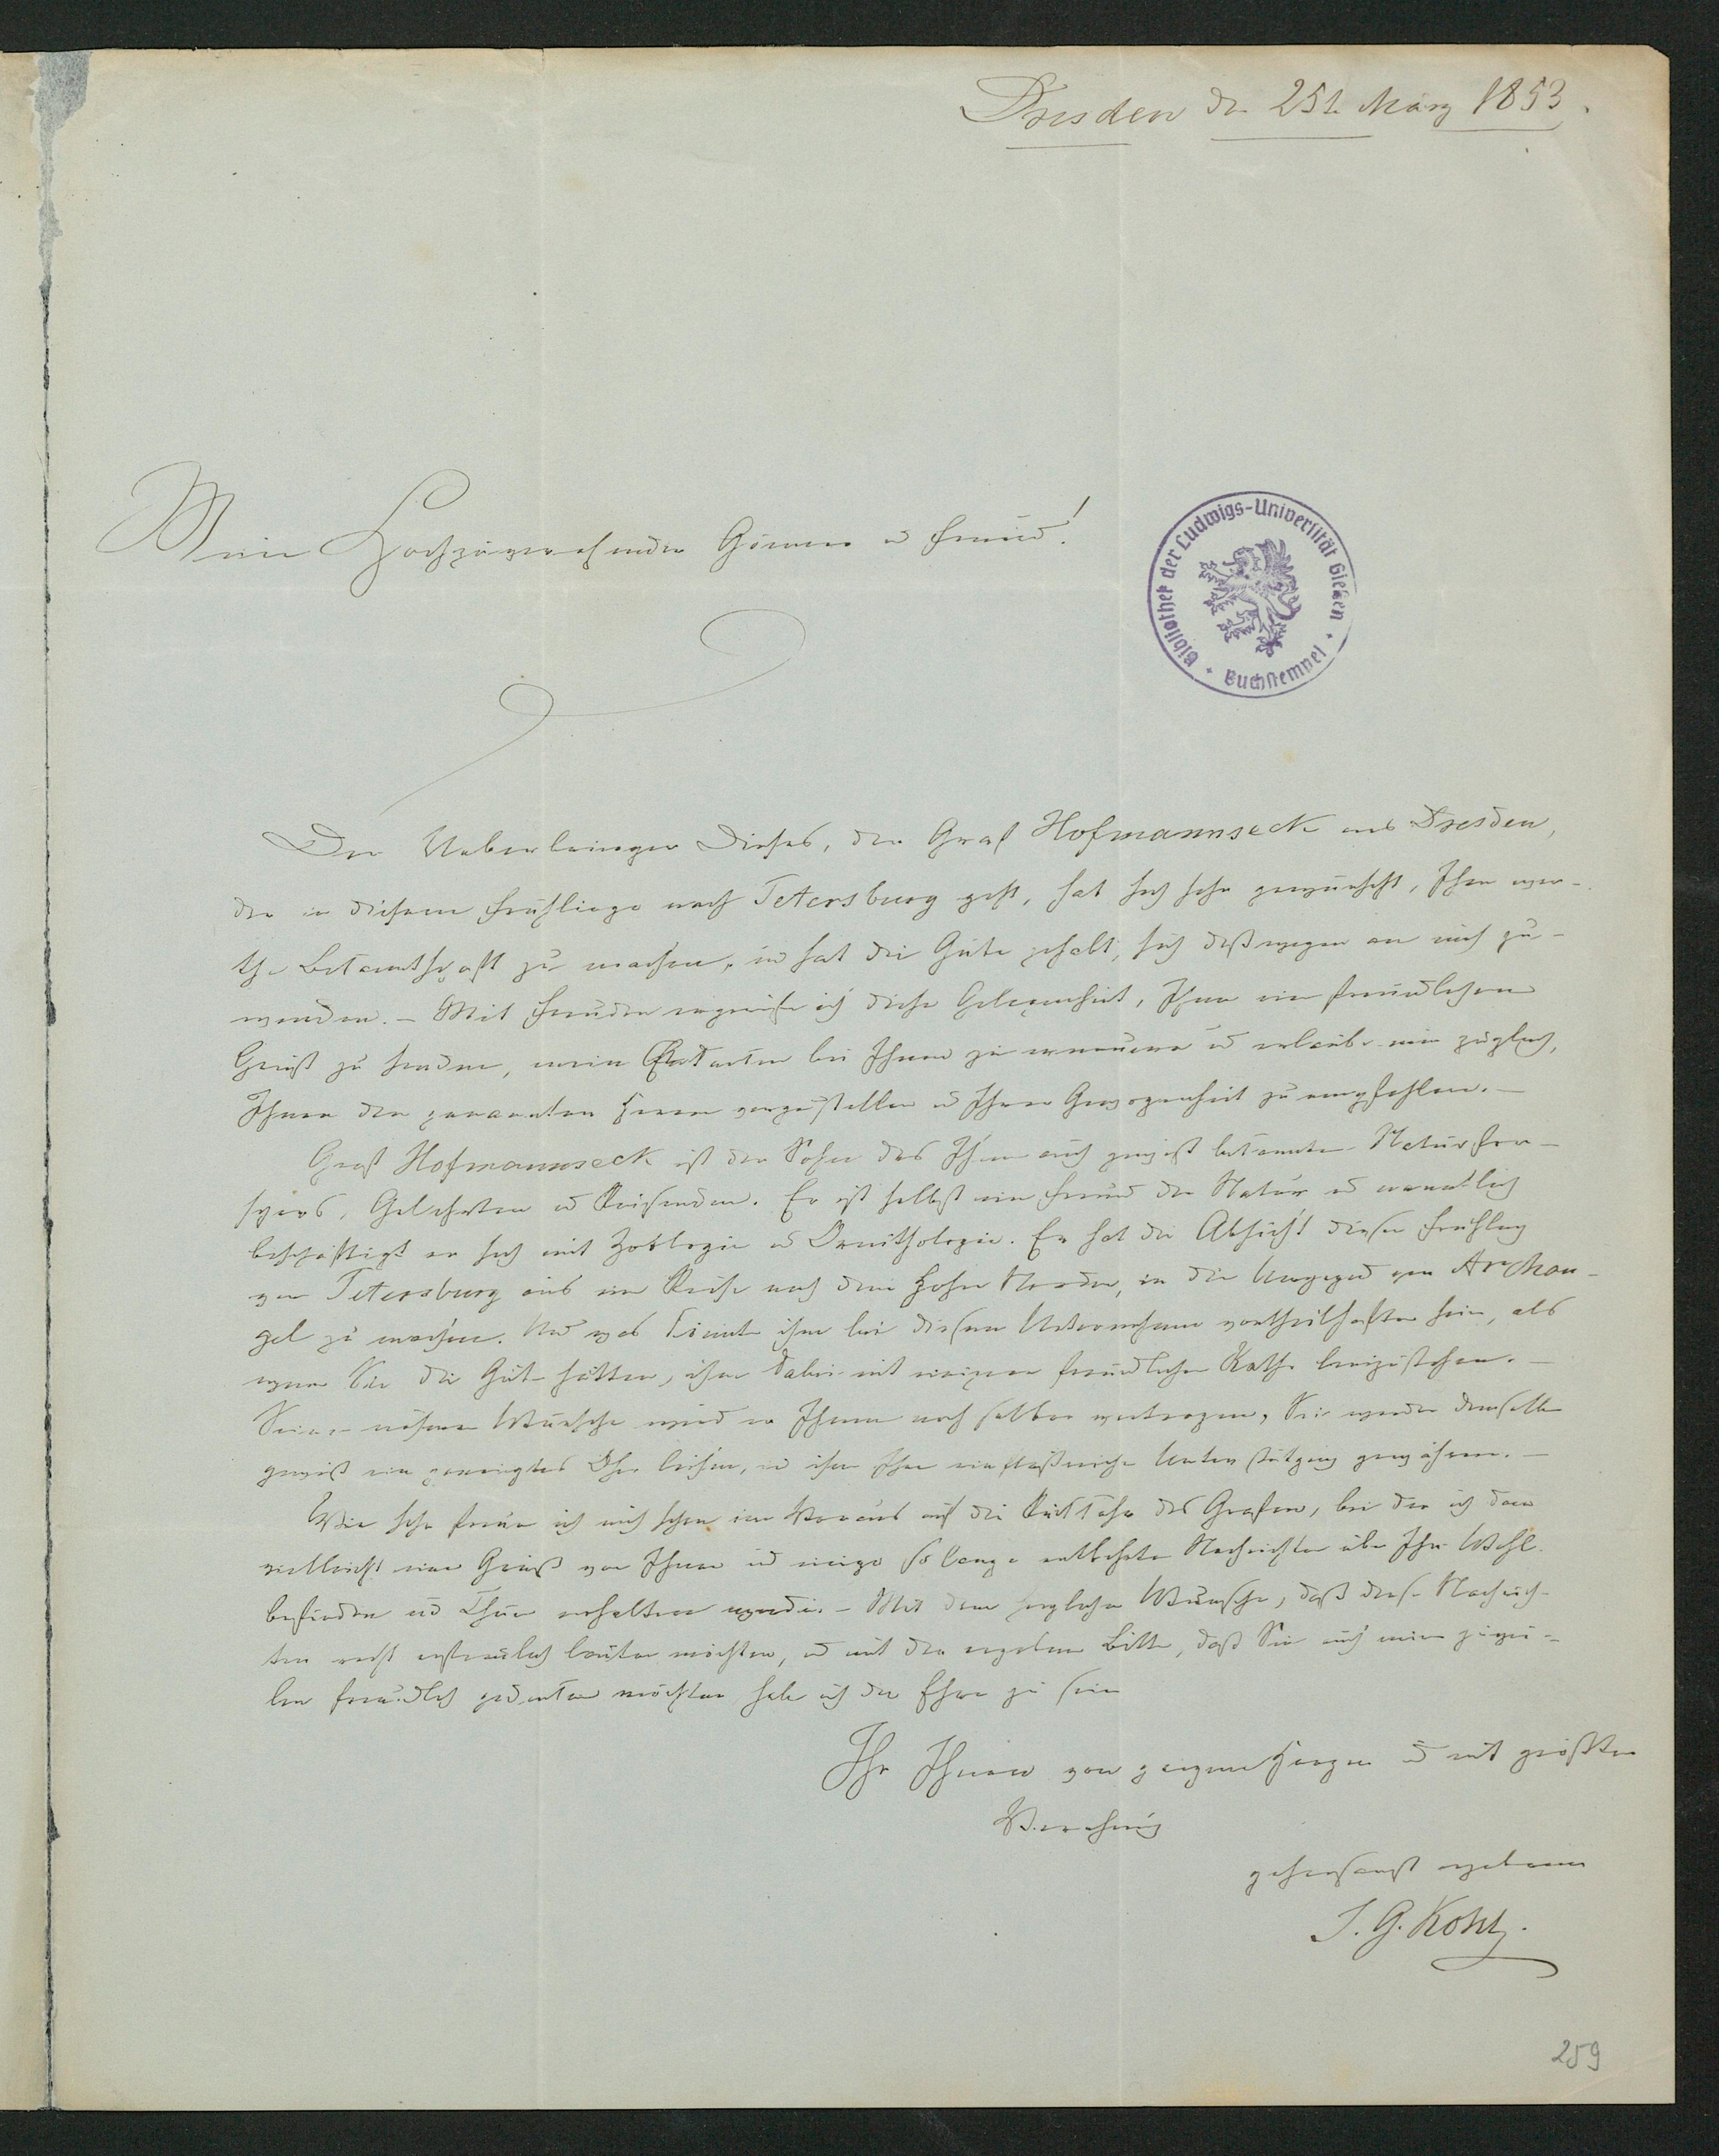 Dresden den 25t. März 1853.
Mein Hochzuverehrender Gönner und Freund!
Bibliothek der Ludwigs-Universität Gießen + Buchstempel +
Der Ueberbringer Dieses, der Graf Hofmannseck aus Dresden,
der in diesem Frühlinge nach Petersburg geht, hat sich sehr gewünscht, Ihre wer-
the Bekanntschaft zu machen, und hat die Güte gehabt, sich deßwegen an mich zu
wenden. – Mit Freuden ergreife ich diese Gelegenheit, Ihnen einen freundlichen
Gruß zu senden, mein Andenken bei Ihnen zu erneuern und erlaube mir zugleich,
Ihnen den genannten Herrn vorzustellen und Ihrer Gewogenheit zu empfehlen. –
Graf Hofmannseck ist der Sohn des Ihnen auch gewiß bekannten Naturfor-
schers, Gelehrten und Reisenden. Er ist selbst ein Freund der Natur und namentlich
beschäftigt er sich mit Zoologie und Ornithologie. Er hat die Absicht diesen Frühling
von Petersburg aus eine Reise nach dem Hohen Norden, in die Umgegend von Archan-
gel zu machen. Und was könnte ihm bei diesem Unternehmen vortheilhafter sein, als
wenn Sie die Güte hätten, ihm dabei mit einigem freundlichen Rathe beizustehen. –
Seine näheren Wünsche wird er Ihnen noch selber vortragen, Sie werden denselben
gewiß ein geneigtes Ohr leihen, und ihm Ihre einflußreiche Unterstützung gewähren. –
Wie sehr freue ich mich schon im Voraus auf die Rückkehr des Grafen, bei der ich dann
vielleicht einen Gruß von Ihnen und einige so lange entbehrte Nachrichten über Ihr Wohl-
befinden und Thun erhalten werde. – Mit dem herzlichen Wunsche, daß diese Nachrich-
ten recht erfreulich lauten möchten, und mit der ergebenen Bitte, daß Sie auch meiner zuwei-
len freundlich gedenken möchten habe ich die Ehre zu sein
Ihr Ihnen von ganzem Herzen und mit größter
Verehrung
gehorsamst ergebener
J. G. Kohl.
259